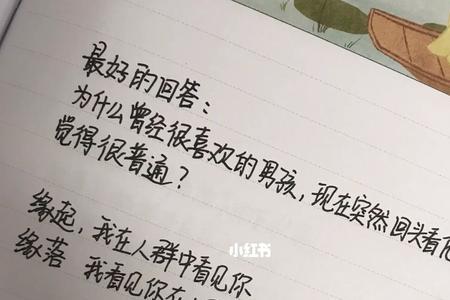 最好的回答：
为什么曾经很喜欢的男孩，现在突然回头看他
觉得很普通？
缘起，我在人群中看见你
缘落 我看见你在
小红书